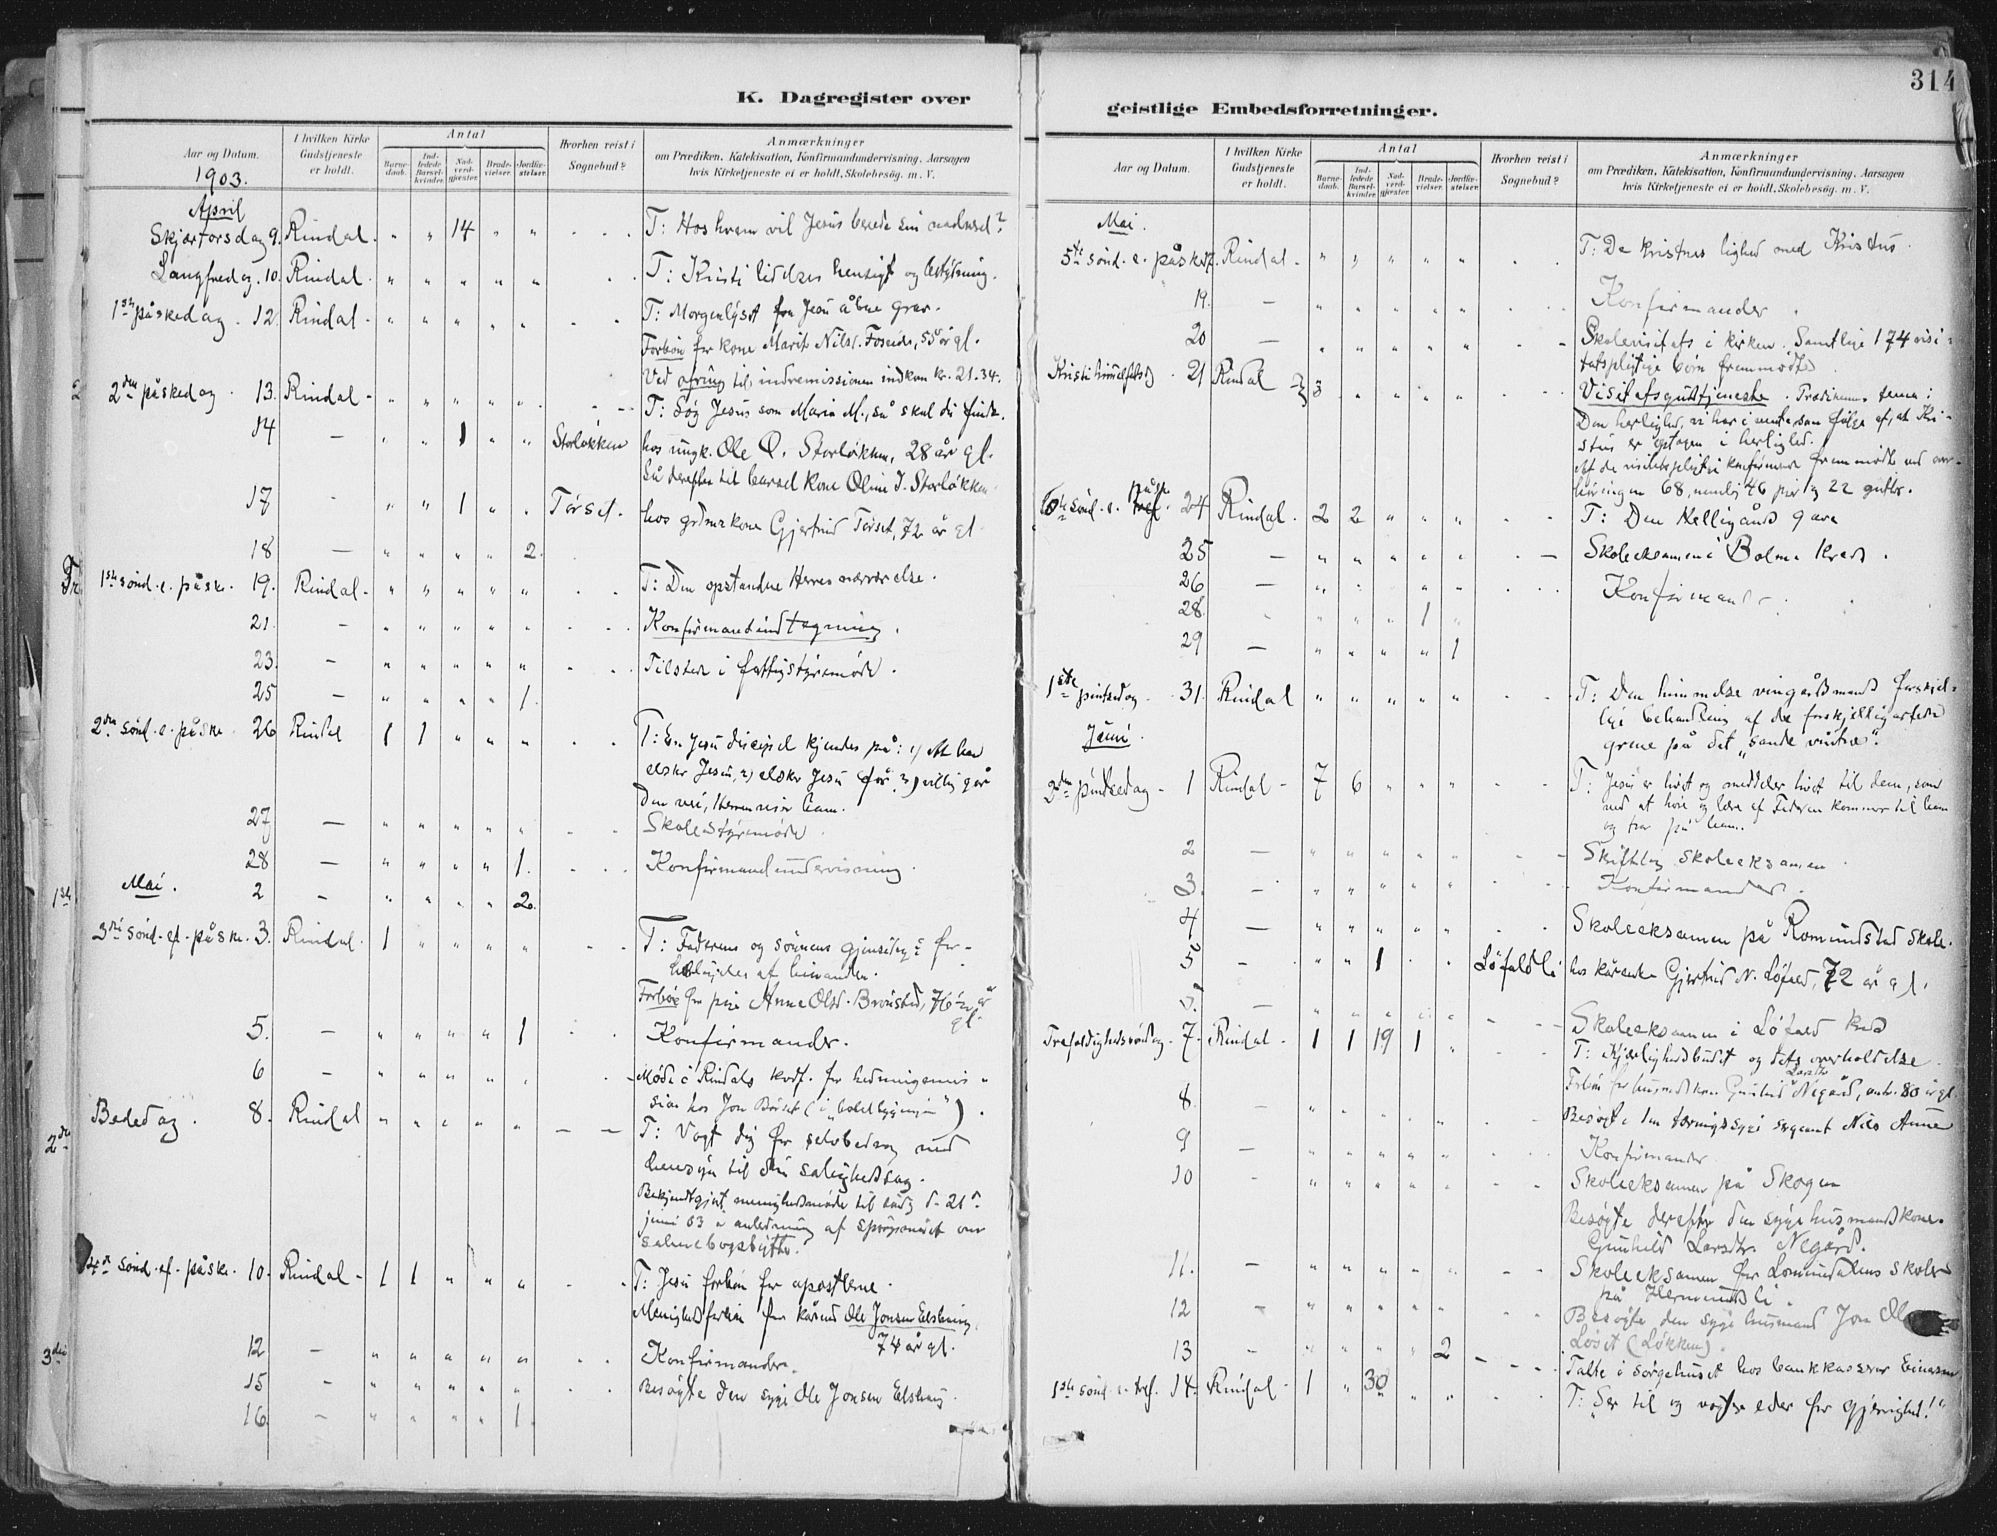 K. Dagregister over
Aar og Datum.
1903.
I hvilken Kirke Gudstjeneste er holdt.
Antal
Barnedaab.
Indledede Barselkvinder.
Nadverdgjæster.
Brudevielser.
Jordfæstelser.
Hvorhen reist i Sognebud?
Anmærkninger
om Prædiken, Katekisation, Konfirmandundervisning, Aarsagen
hvis Kirketjeneste ei er holdt, Skolebesøg, m. V.
April
Skjærtorsdag 9. Rindal. " " 14 " " T: Hos hvem vil Jesus berede sin nadverd?
Langfredag. 10. Rindal " " " " " T: Kristi lidelses hensigt og betydning.
1ste påskedag. 12. Rindal - " " " " " T: Morgenlyset fra Jesu åbne grav.
Forbøn for kone Marit Nilsd. Foseide, 55 år gl.
Ved ofring til indremissionen indkom kr. 21.34.
2den påskedag. 13. Rindal - " " " " " T: Søg Jesus som Maria M., så skal du finde.
14 — " " 1 " " Storløkken hos ungk. Ole O. Storløkken, 28 år gl.
Så derefter til barsel kone Oline J. Storløkken
17 - " " 1 " " Tørset. hos grdmrkone Gjertrud Tørset, 72 år gl.
18 — " " " " 2.
1ste sønd. e. påske. 19. Rindal - " " " " " T: Den opstandne Herres nærværelse.
21. — " " " " " Konfirmandindtegning.
23. — " " " " " Tilstede i fattigstyremøde.
25 — " " " " 1.
2den sønd. e. påske 26 Rindal 1 1 " " " T: En Jesu discipel kjendes på: 1) At han
elsker Jesus, 2) elsker Jesu får, 3) villig går
den vei, Herren viser ham.
27 — " " " " " Skolestyremøde
28 — " " " " 1. Konfirmandundervisning.
Mai.
2 - " " " " 2.
3die sønd. ef. påske. 3. Rindal. 1 " " " " T: Faderens og sønnens gjensidige for-
herligelse af hinanden.
Forbøn for pige Anne Olsd. Brønstad, 76½ år gl.
5. — " " " " 1 Konfirmander.
6 — " " " " " Møde i Rindals kvdf. for hedningemis-
sion hos Jon Børset (i „ ").
Bededag. 8. Rindal " " " " " — — T: Vogt dig for selvbedrag med
hensyn til din salighedssag.
Bekjendtgjort menighedsmøde til søndg d. 21de
juni 03 i anledning af spørgsmålet om
salmebogsbytte.
4de sønd. ef. påske. 10. Rindal - 1 1 " " " T: Jesu forbøn for apostlerne.
Menighedsforbøn for kårmd Ole Jonsen Elshaug,
74 år gl.
12 — " " " " " Konfirmander.
15 — " " " " " Besøgte den syge Ole Jonsen Elshaug.
16 — " " " " 1.
314
geistlige Embedsforretninger.
Aar og Datum.
I hvilken Kirke Gudstjeneste er holdt.
Antal
Barnedaab.
Indledede Barselkvinder.
Nadverdgjæster.
Brudevielser.
Jordfæstelser.
Hvorhen reist i Sognebud?
Anmærkninger
om Prædiken, Katekisation, Konfirmandundervisning, Aarsagen
hvis Kirketjeneste ei er holdt, Skolebesøg, m. V.
Mai.
5te sønd. e. påske 17. Rindal - " " " " " T: De kristnes lighed med Kristus.
19. — " " " " " Konfirmander.
20 — " " " " " Skolevisitats i kirken. Samtlige 174 visi-
tatspligtige børn fremmødte.
Kristi himmelfartsdg. 21 Rindal 3 " " " " Visitatsgudstjeneste. Prædikenens tema:
Den herlighed, vi har i vente som følge af, at Kri-
stus er optagen i herlighed.
Af de visitatspligtige konfirmerede fremmødte ved over-
høringen 68, nemlig 46 piger og 22 gutter.
6te sønd. e. påske 24 Rindal. 2 2 " " " T: Den Helligånds gave
25 — " " " " " — Skoleeksamen i Bolme kreds.
26 — " " " " Konfirmander.
28. " " " 1 "
29 — " " " " 1
1ste pintsedag. 31. Rindal " " " " " T: Den himmelske vingårdsmands forskjel-
lige behandling af de forskjelligartede
grene på det „sande vintræ".
Juni.
2den pintsedag - 1 Rindal - 7 6 " " " T: Jesus er livet og meddeler livet til dem, som
ved at høre og lære af Faderen kommer til ham
og tror på ham.
2 — " " " " " Skiftleg skoleeksamen.
3. — " " " " " Konfirmander.
4 — " " " " " Skoleeksamen på Romundstad skole.
5 - " " 1 " " Løfaldli hos kårenke Gjertrud N. Løfald, 72 år gl.
5. — " " " " " Skoleeksamen i Løfald kreds
Trefoldighedssøndag. 7. Rindal - 1 1 19 1 " T: Kjærlighedsbudet og dets overholdelse.
Forbøn for husmdskone Gunhild Larsdtr Negård, omtr. 80 år gl.
8. — " " " " " Besøgte den tæringssyge sergeant Nils Aune
9 — " " " " " Konfirmander
10 - " " " " " Skoleeksamen på Skogen
Besøgte derefter den syge husmandskone.
Gunhild Larsdtr. Negård.
11. — " " " " " Skoleeksamen for Lomundalens skole
på Hermundsli.
12 — " " " " " Besøgte den syge husmand Jon Ol
Løset (Løkken).
13 - " " " " 2 Talte i sørgehuset hos bankkasserer Einarsen
1ste sønd. e. tref. 14. Rindal - 1 " 30 " " T: „Ser til og vogter eder for gjerrighed!"